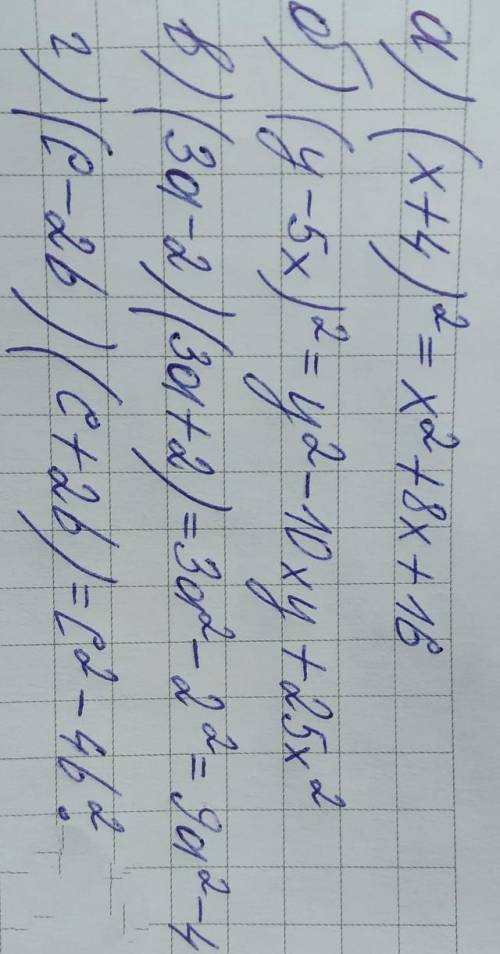 а) (x+4)² = x²+8x+16
б) (y-5x)² = y²-10xy+25x²
в) (3a-2)(3a+2)=3a²-2²=9a²-4
г) (c-2b)(c+2b)=c²-4b².